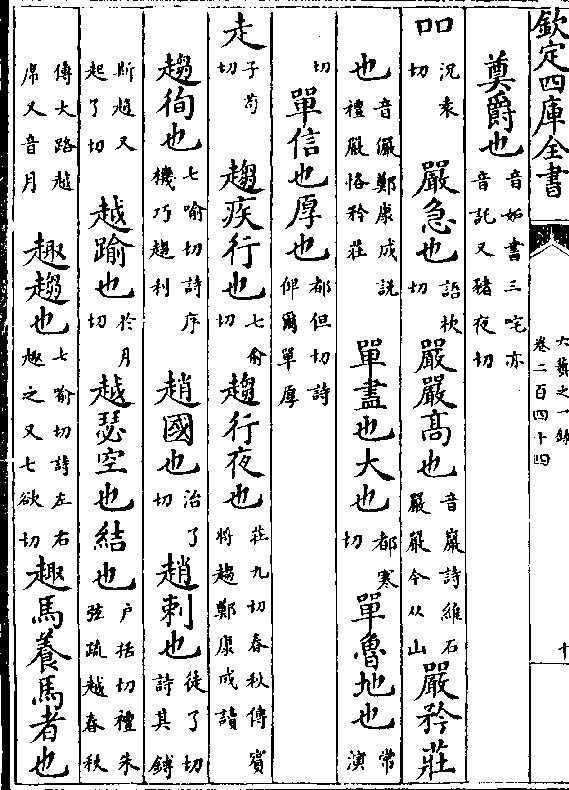 欽定四庫全書
六藝之一錄
卷二百四十四
十
奠爵也音妒書三咤亦音託又豬夜切
吅況袁切 嚴急也語杴切 嚴嚴高也音巖詩維石嚴嚴今从山 嚴矜莊
也音儼鄭康成說禮嚴恪矜莊 單盡也大也都寒切 單魯地也常演
切 單信也厚也都但切詩仰爾單厚
走子苟切 趨疾行也七俞切 趨行夜也莊九切春秋傳賓將趨鄭康成讀
趨徇也七喻切詩序機巧趨利 趙國也治了切 趙刺也徒了切詩其鎛
斯趙又起了切 越踰也於月切 越瑟空也結也户括切禮朱弦疏越春秋
傳大路越席又音月 趣趨也七喻切詩左右趣之又七欲切 趣馬養馬者也